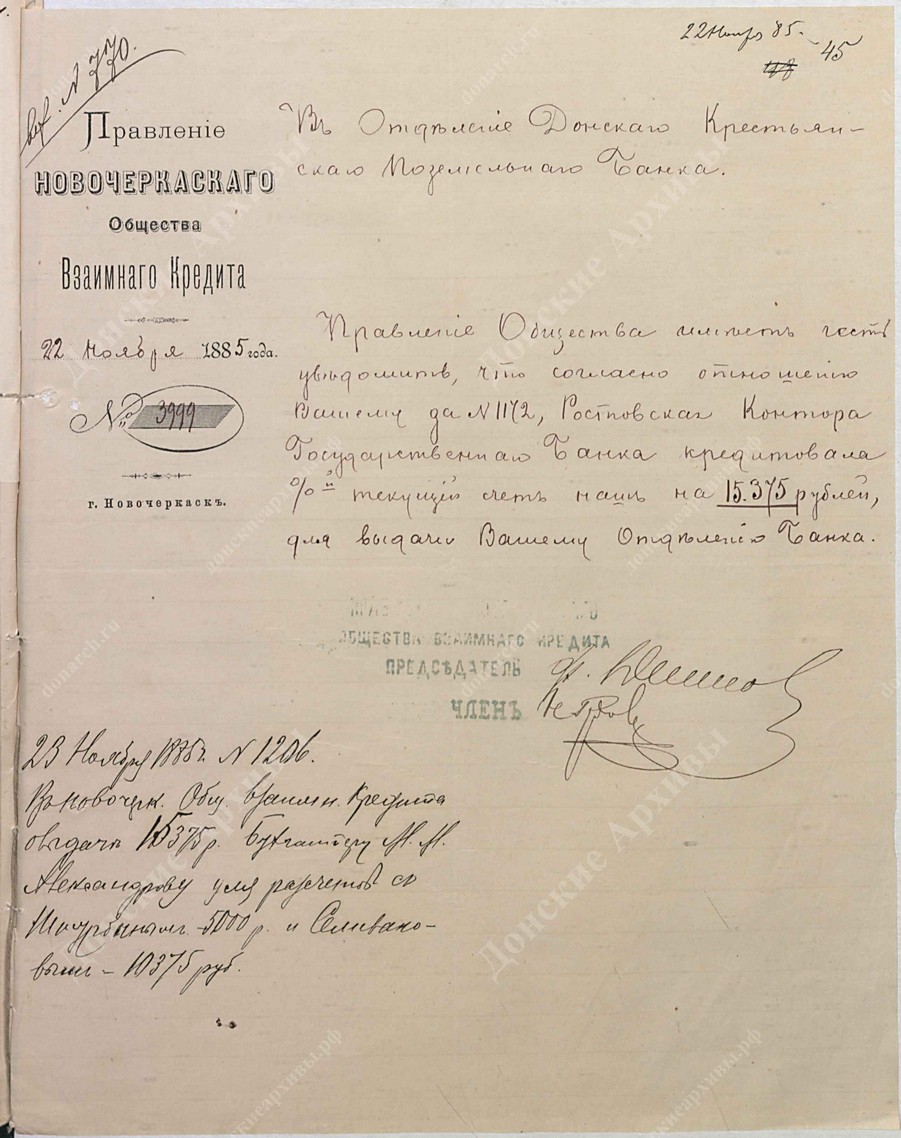 22 Нояб 85.
45
вх. N 770.
Правленіе
НОВОЧЕРКАСКАГО
Общества
Взаимнаго Кредита
22 Ноября 1885 года.
№ 3999
г. Новочеркаскъ.
Въ Отдѣленіе Донскаго Крестьян-
скаго Поземельнаго Банка.
Правленіе Общества имѣетъ честь
увѣдомить, что согласно отношенію
Вашему за N 1172, Ростовская Контора
Государственнаго Банка кредитовала
текущій счетъ нашъ на 15.375 рублей,
для выдачи Вашему Отдѣленію Банка.
ОБЩЕСТВА ВЗАИМНАГО КРЕДИТА
ПРЕДСѢДАТЕЛЬ
ЧЛЕНЪ
23 Ноября 1885 г. N 1206.
Въ Новочерк. Общ. взаимн. Кредита
о выдачѣ 15375 р. Бухгалтеру М. М.
Александрову для расчетовъ съ
5000 р. и Селивано-
вымъ – 10375 руб.
Донские Архивы
донскиеархивы.рф
donarch.ru